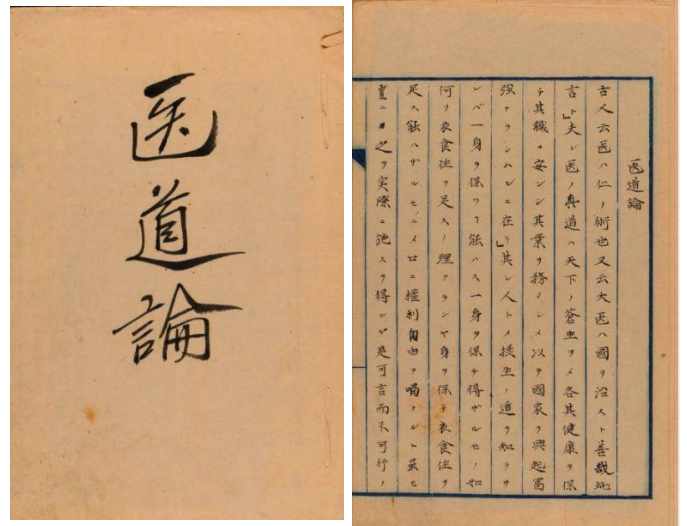 医道論
医道論
古人云医ハ仁ノ術也又云大医ハ國ヲ治スト善哉此
言ト」夫レ医ノ真道ハ天下ノ蒼生ヲメ各其健康ヲ保
チ其職ニ安ンシ其業ヲ務メシメ以テ國家ヲ興起富
強ナラシムルニ在リ」其レ人トメ摂生ノ道ヲ知ラサ
レバ一身ヲ保ツ能ハス一身ヲ保チ得ザルモノ如
何ソ衣食住ヲ足スノ理アランヤ身ヲ保チ衣食住ヲ
足ス能ハザルモノニメ口ニ權利自由ヲ唱フルト虽モ
豈ニ之ヲ実際ニ施スヲ得ンヤ是可言而不可行ノ